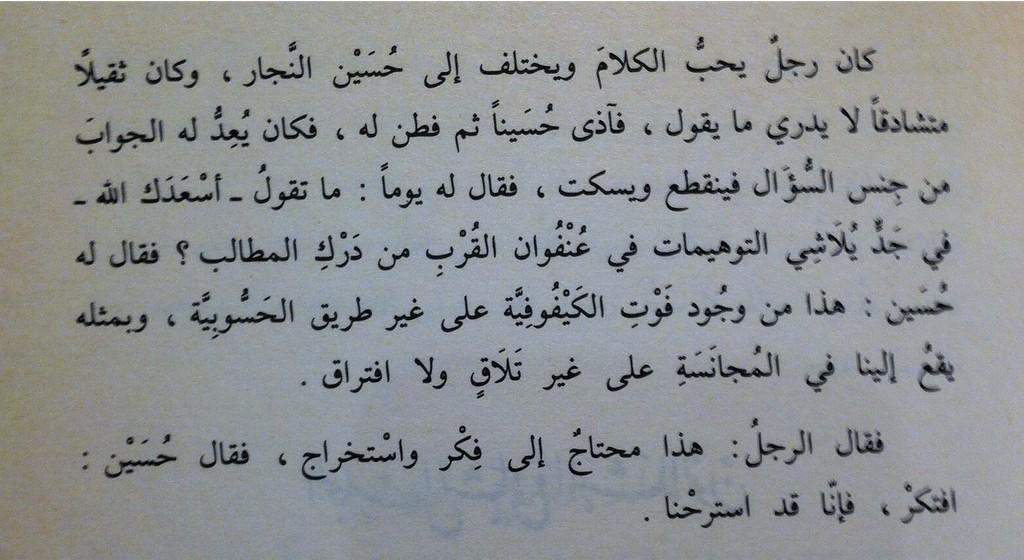 كان رجلٌ يحبُّ الكلامَ ويختلف إلى حُسَيْن النَّجار ، وكان ثقيلًا
متشادقاً لا يدري ما يقول ، فآذى حُسَيناً ثم فطن له ، فكان يُعِدُّ له الجوابَ
من جِنس السُّؤَال فينقطع ويسكت ، فقال له يوماً : ما تقولُ ـ أسْعَدَك الله ـ
في جَدٍّ يُلَاشِي التوهيمات في عُنْفُوان القُرْبِ من دَرْكِ المطالب ؟ فقال له
حُسَين : هذا من وجُود فَوْتِ الكَيْفُوفِيَّة على غير طريق الحَسُّوبِيَّة ، وبمثله
يقعُ إلينا في المُجانَسَةِ على غير تَلَاقٍ ولا افتراق .
فقال الرجلُ : هذا محتاجٌ إلى فِكْر واسْتخراج ، فقال حُسَيْن :
افتكرْ ، فإنّا قد استرحْنا .